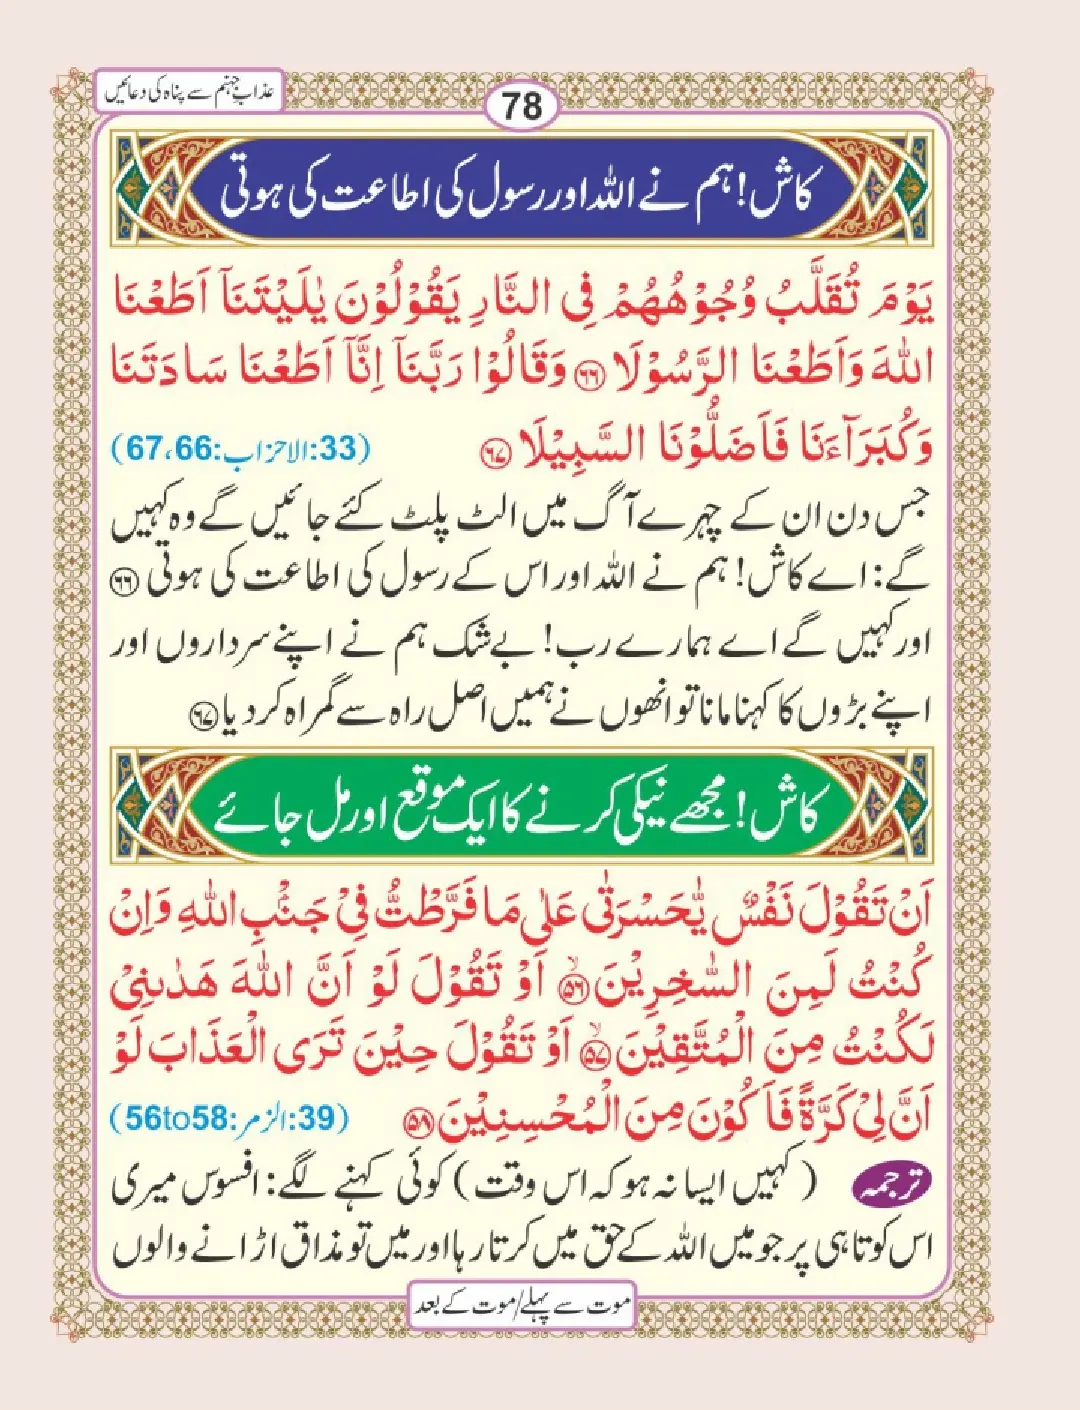 عذابِ جہنم سے پناہ کی دعائیں
78
کاش! ہم نے اللہ اور رسول کی اطاعت کی ہوتی
یَوْمَ تُقَلَّبُ وُجُوْهُهُمْ فِی النَّارِ یَقُوْلُوْنَ یٰلَیْتَنَاۤ اَطَعْنَا
اللّٰهَ وَاَطَعْنَا الرَّسُوْلَا ﴿۶۶﴾ وَقَالُوْا رَبَّنَاۤ اِنَّاۤ اَطَعْنَا سَادَتَنَا
وَكُبَرَآءَنَا فَاَضَلُّوْنَا السَّبِیْلَا ﴿۶۷﴾ (33:الاحزاب:67،66)
جس دن ان کے چہرے آگ میں الٹ پلٹ کئے جائیں گے وہ کہیں
گے: اے کاش! ہم نے اللہ اور اس کے رسول کی اطاعت کی ہوتی ﴿۶۶﴾
اور کہیں گے اے ہمارے رب! بےشک ہم نے اپنے سرداروں اور
اپنے بڑوں کا کہنا مانا تو انھوں نے ہمیں اصل راہ سے گمراہ کر دیا ﴿۶۷﴾
کاش! مجھے نیکی کرنے کا ایک موقع اور مل جائے
اَنْ تَقُوْلَ نَفْسٌ یّٰحَسْرَتٰی عَلٰی مَا فَرَّطْتُّ فِیْ جَنْۢبِ اللّٰهِ وَاِنْ
كُنْتُ لَمِنَ السّٰخِرِیْنَ ﴿۵۶﴾ۙ اَوْ تَقُوْلَ لَوْ اَنَّ اللّٰهَ هَدٰىنِیْ
لَكُنْتُ مِنَ الْمُتَّقِیْنَ ﴿۵۷﴾ۙ اَوْ تَقُوْلَ حِیْنَ تَرَی الْعَذَابَ لَوْ
اَنَّ لِیْ كَرَّةً فَاَكُوْنَ مِنَ الْمُحْسِنِیْنَ ﴿۵۸﴾ (39:الزمر:56to58)
ترجمہ (کہیں ایسا نہ ہو کہ اس وقت) کوئی کہنے لگے: افسوس میری
اس کوتاہی پر جو میں اللہ کے حق میں کرتا رہا اور میں تو مذاق اڑانے والوں
موت سے پہلے/موت کے بعد